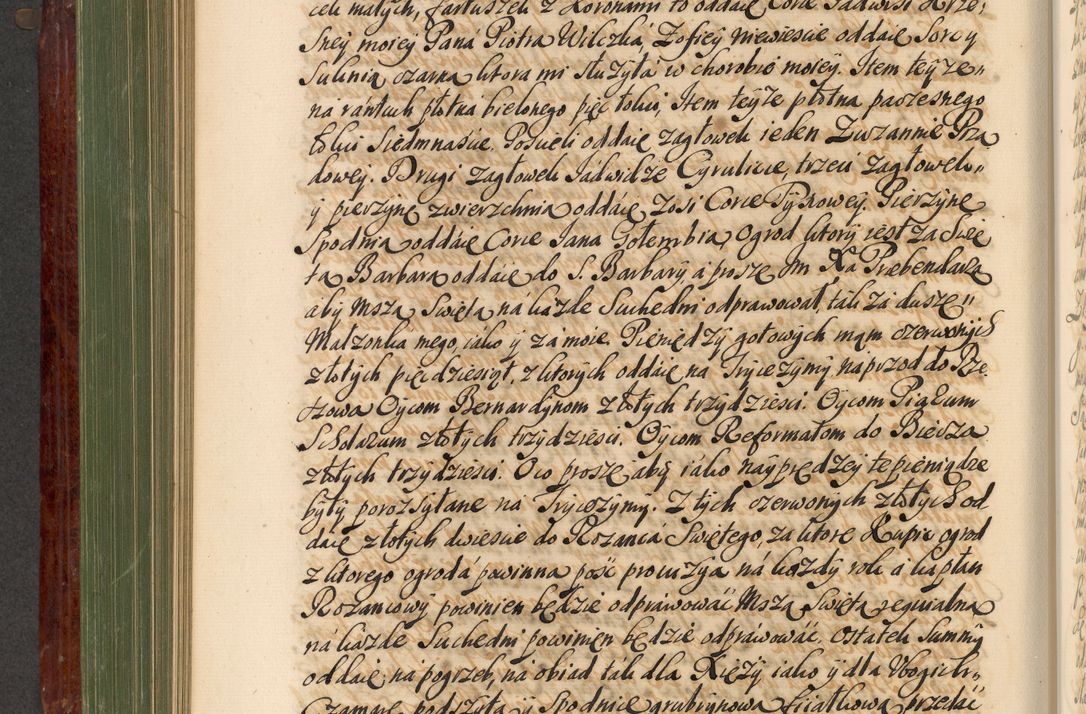 celi małych, fartuszek z Koronami to oddaię Corce Jadwisi Krze,
sney moiey Pana Piotra Wilczka, Zofiey niewiescie oddaię Sorcy
Suknia czarna ktora mi służyła w chorobie moiey. Item teyże
na rańtuch płotna bielonego pięć łokci, Item teyże płotna paczesnego
łokci Siedmnaście. Pościeli oddaię zagłowek ieden Zuzannie Prza
dowey. Drugi zagłowek Jadwidze Cyrulicce, trzeci zagłowek
y pierzynę zwierzchnia oddaię Zosi Corce Pyskowey. Pierzynę
Spodnia oddaię Corce Jana Gołembia, Ogrod ktory iest za Swię
ta Barbara oddaię do S. Barbary, a proszę Jm Xa Præbendarza
aby Msza Swięta na każde Suchedni odprawował, tak za duszę
Małzonka mego, iako y za moię. Pieniędzy gotowych mam czerwonych
złotych pięcdziesiąt, z ktorych oddaię na Trycezymy naprzod do Rze,
szowa Oycom Bernardynom złotych trzydziesci. Oycom Piarum
Scholarum złotych trzydziesci. Oycom Reformatom do Biecza
złotych trzydziesci. O co proszę aby iako nayprędzey te pieniądze
były porozsyłane na Trycezymy. Z tych czerwonych złotych od
daię złotych dwiescie do Rozanca Swiętego, za ktore Kupic ogrod
z ktorego ogroda powinna pość procuzya na każdy rok a kapłan
Rozancowy powinien będzie odprawować Msza Swięta requialna
na każde Suchedni powinien będzie odprawować. Ostatek Summy
oddaię na pogrzeb, na obiad tak dla Xięży iako y dla Vbogich,
Czamarę podszyta y Spodnicę grubrynowa fiiałkowa przedać